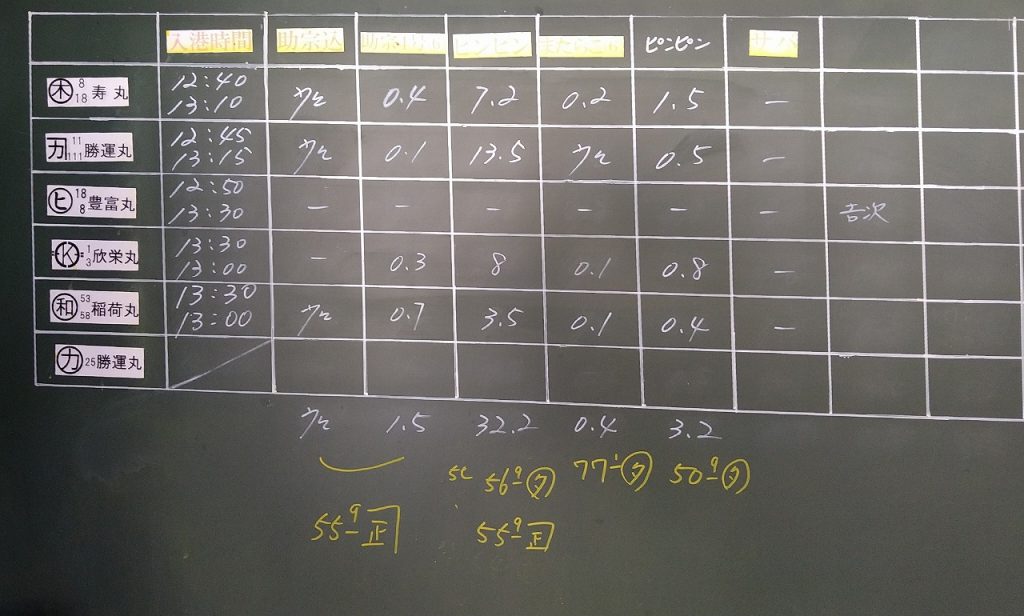 入港時間 助宗込 ピンピン ピンピン サバ
木 8 18 寿丸 12:40 13:10 0.4 7.2 0.2 1.5 –
11 111 勝運丸 12:45 13:15 0.1 13.5 0.5 –
ヒ 18 8 豊富丸 12:50 13:30 – – – – – – 吉次
K 1 3 欣栄丸 13:30 13:00 – 0.3 8 0.1 0.8 –
和 53 58 稲荷丸 13:30 13:00 0.7 3.5 0.1 0.4 –
カ 25 勝運丸
1.5 32.2 0.4 3.2
56 77 50
55 正 55 正